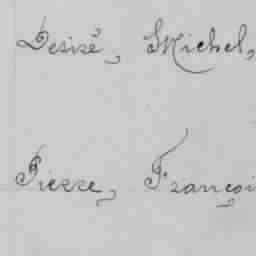 Desiré, Michel,
Pierre, Françoi